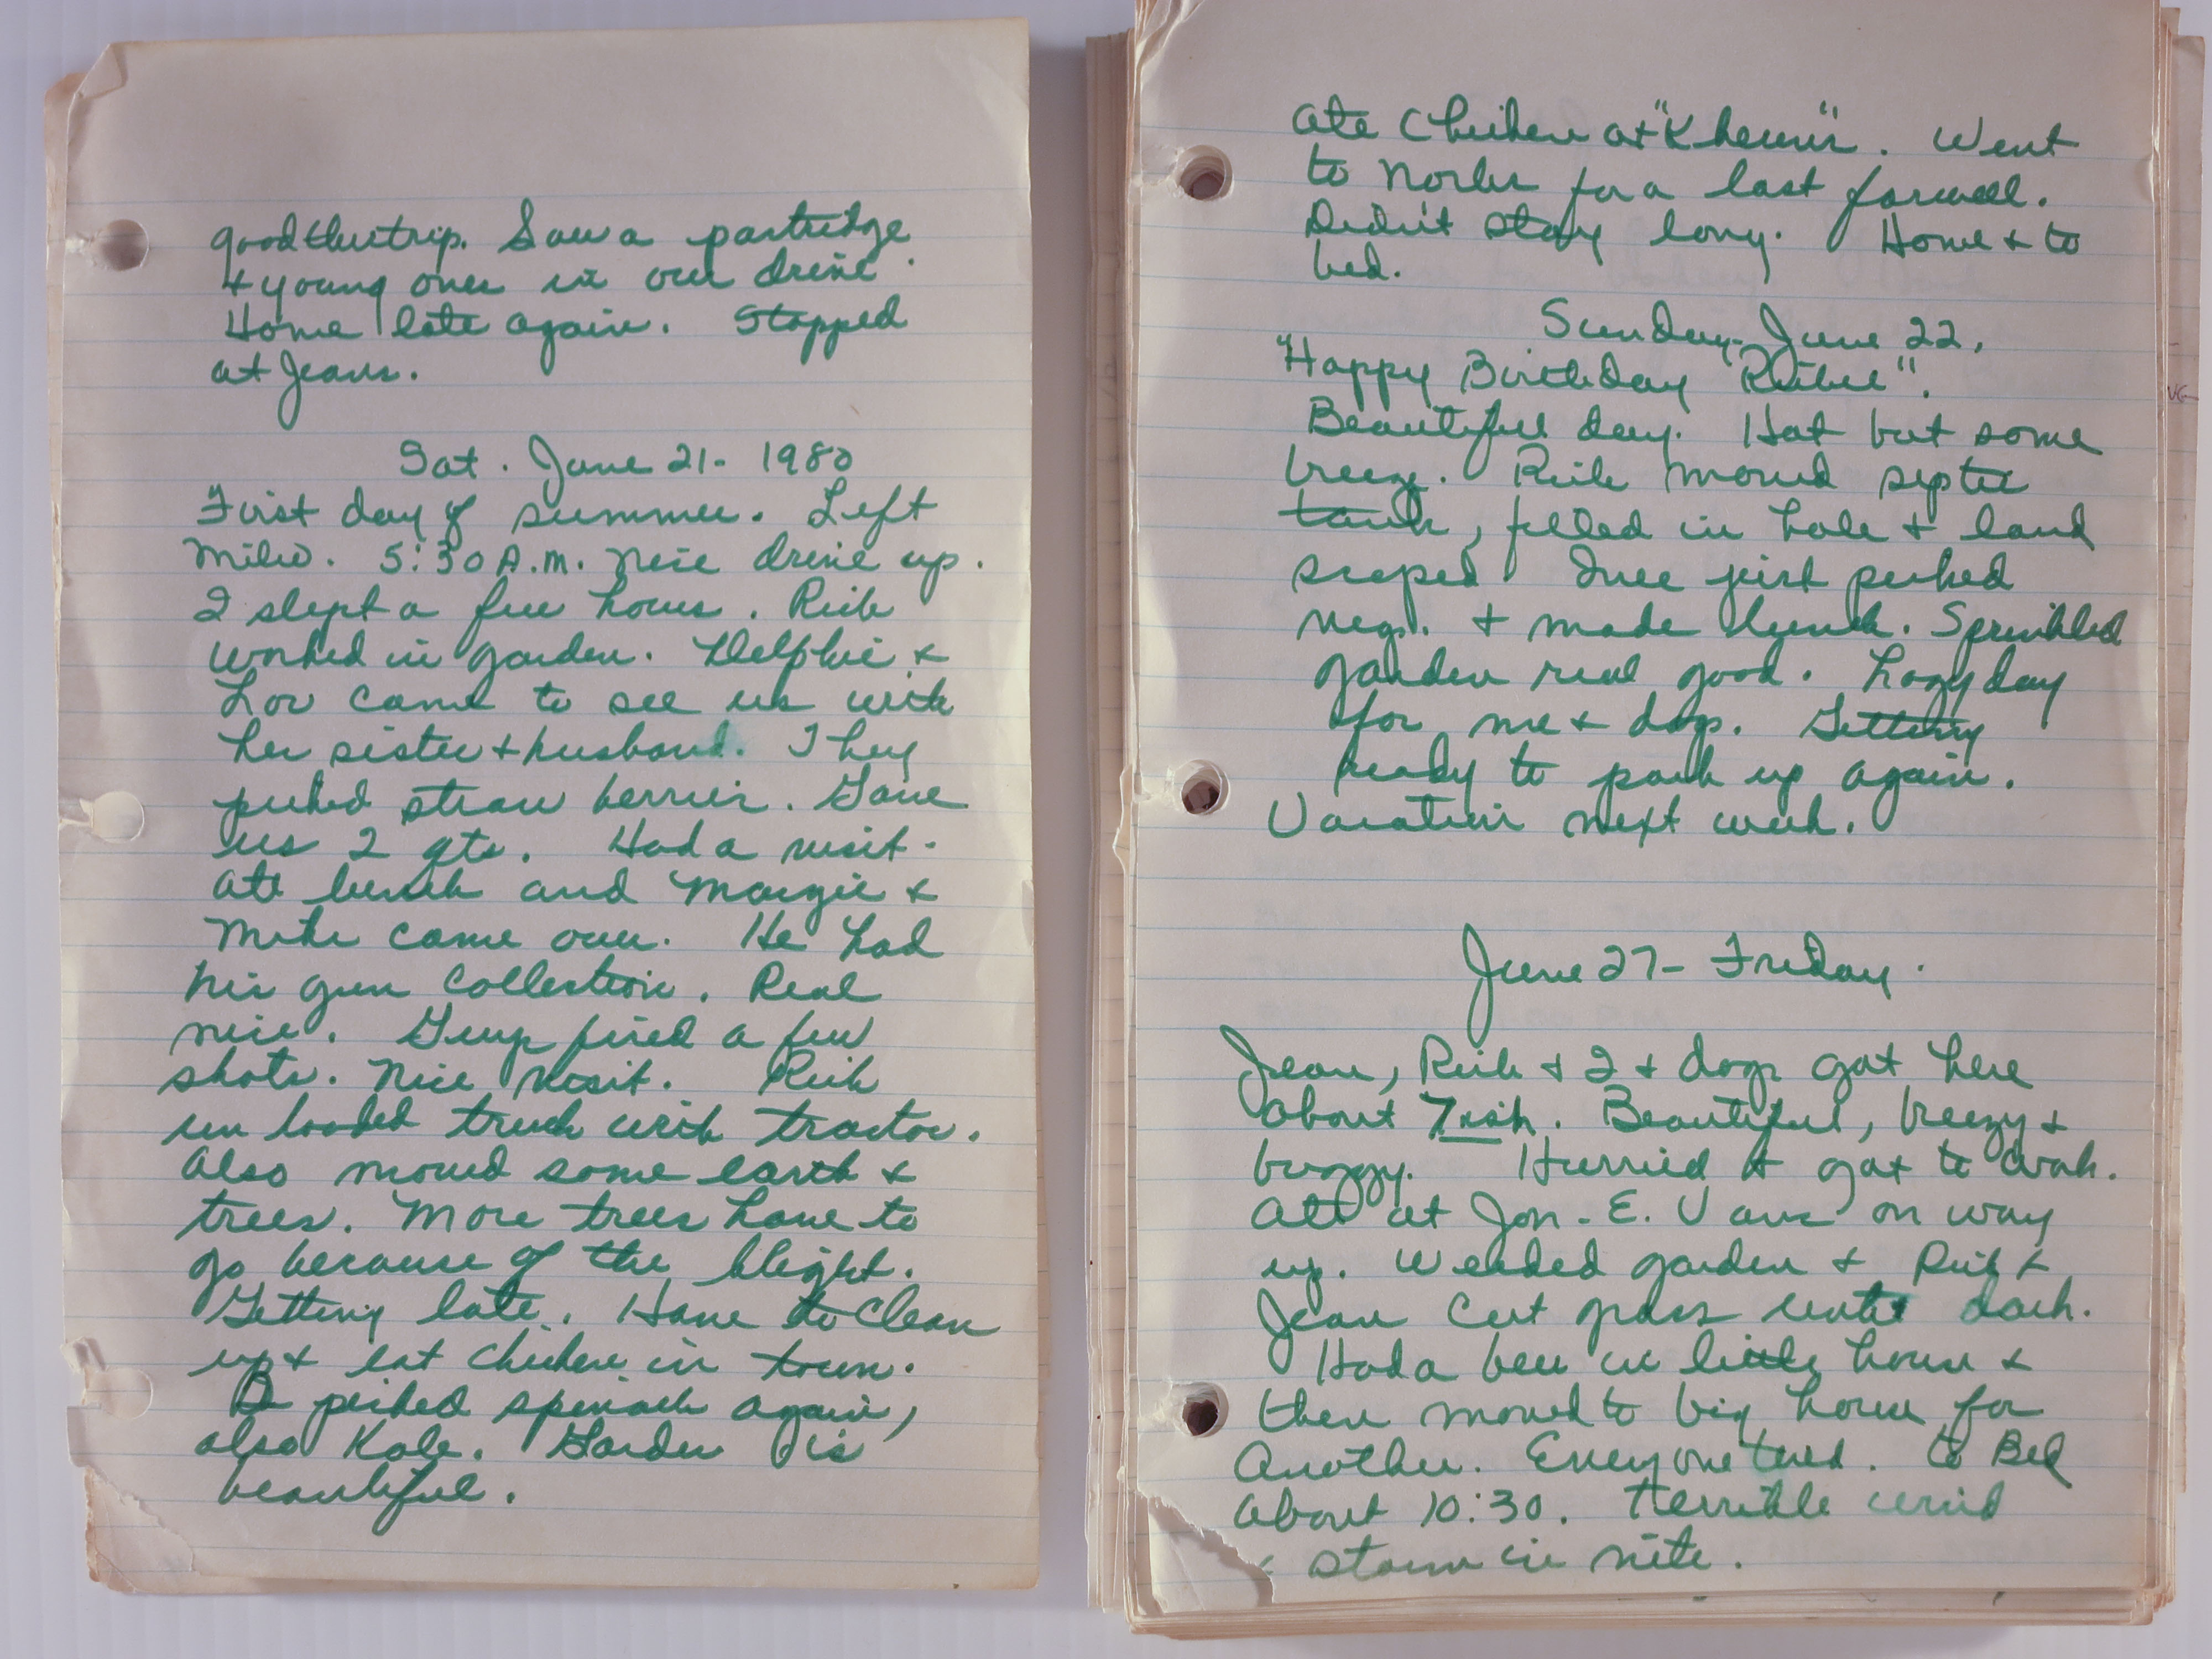 good this trip. Saw a partridge
+ young ones in our drive.
Home late again. Stopped
at Jeans.
Sat. June 21 - 1980
First day of summer. Left
Milw. 5:30 A.M. Nice drive up.
I slept a few hours. Rich
worked in garden. Delphie +
Lov came to see us with
her sister + husband. They
picked straw berries. Gave
us 2 qts. Had a visit.
Ate lunch and Margie +
Mike came over. He had
his gun collection. Real
nice. fired a few
shots. Nice visit. Rich
un loaded truck with tractor.
Also moved some earth +
trees. More trees have to
go because of the blight.
Getting late. Have to clean
up + eat chicken in town.
I picked spinach again,
also Kale. Garden is
beautiful.
Ate chicken at. Went
to for a last farwell.
Didn't stay long. Home + to
bed.
Sunday - June 22,
"Happy Birthday".
Beautiful day. Hot but some
breeze. Rich moved septic
tank, filled in hole + land
scaped. Inee just picked
veg. + made lunch. Sprinkled
garden real good. Lazy day
for me + dogs. Getting
ready to pack up again.
Vacation next week.
June 27 - Friday.
Jean, Rich + I + dogs got here
about 7ish. Beautiful, breezy +
buggy. Hurried + got to work.
Ate at Jon. E. Vans on way
up. Weeded garden + Rich +
Jean cut grass until dark.
Had a beer in little house +
then moved to big house for
Another. Everyone tired. to Bed
about 10:30. Terrible wind
+ storm in nite.